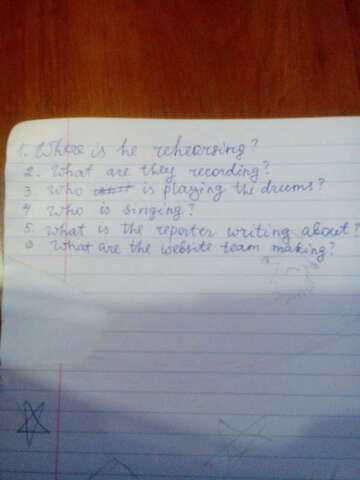 1. Where is he rehearsing?
2. What are they recording?
3 Who is playing the drums?
4 Who is singing?
5. What is the reporter writing about?
6 What are the website team making?